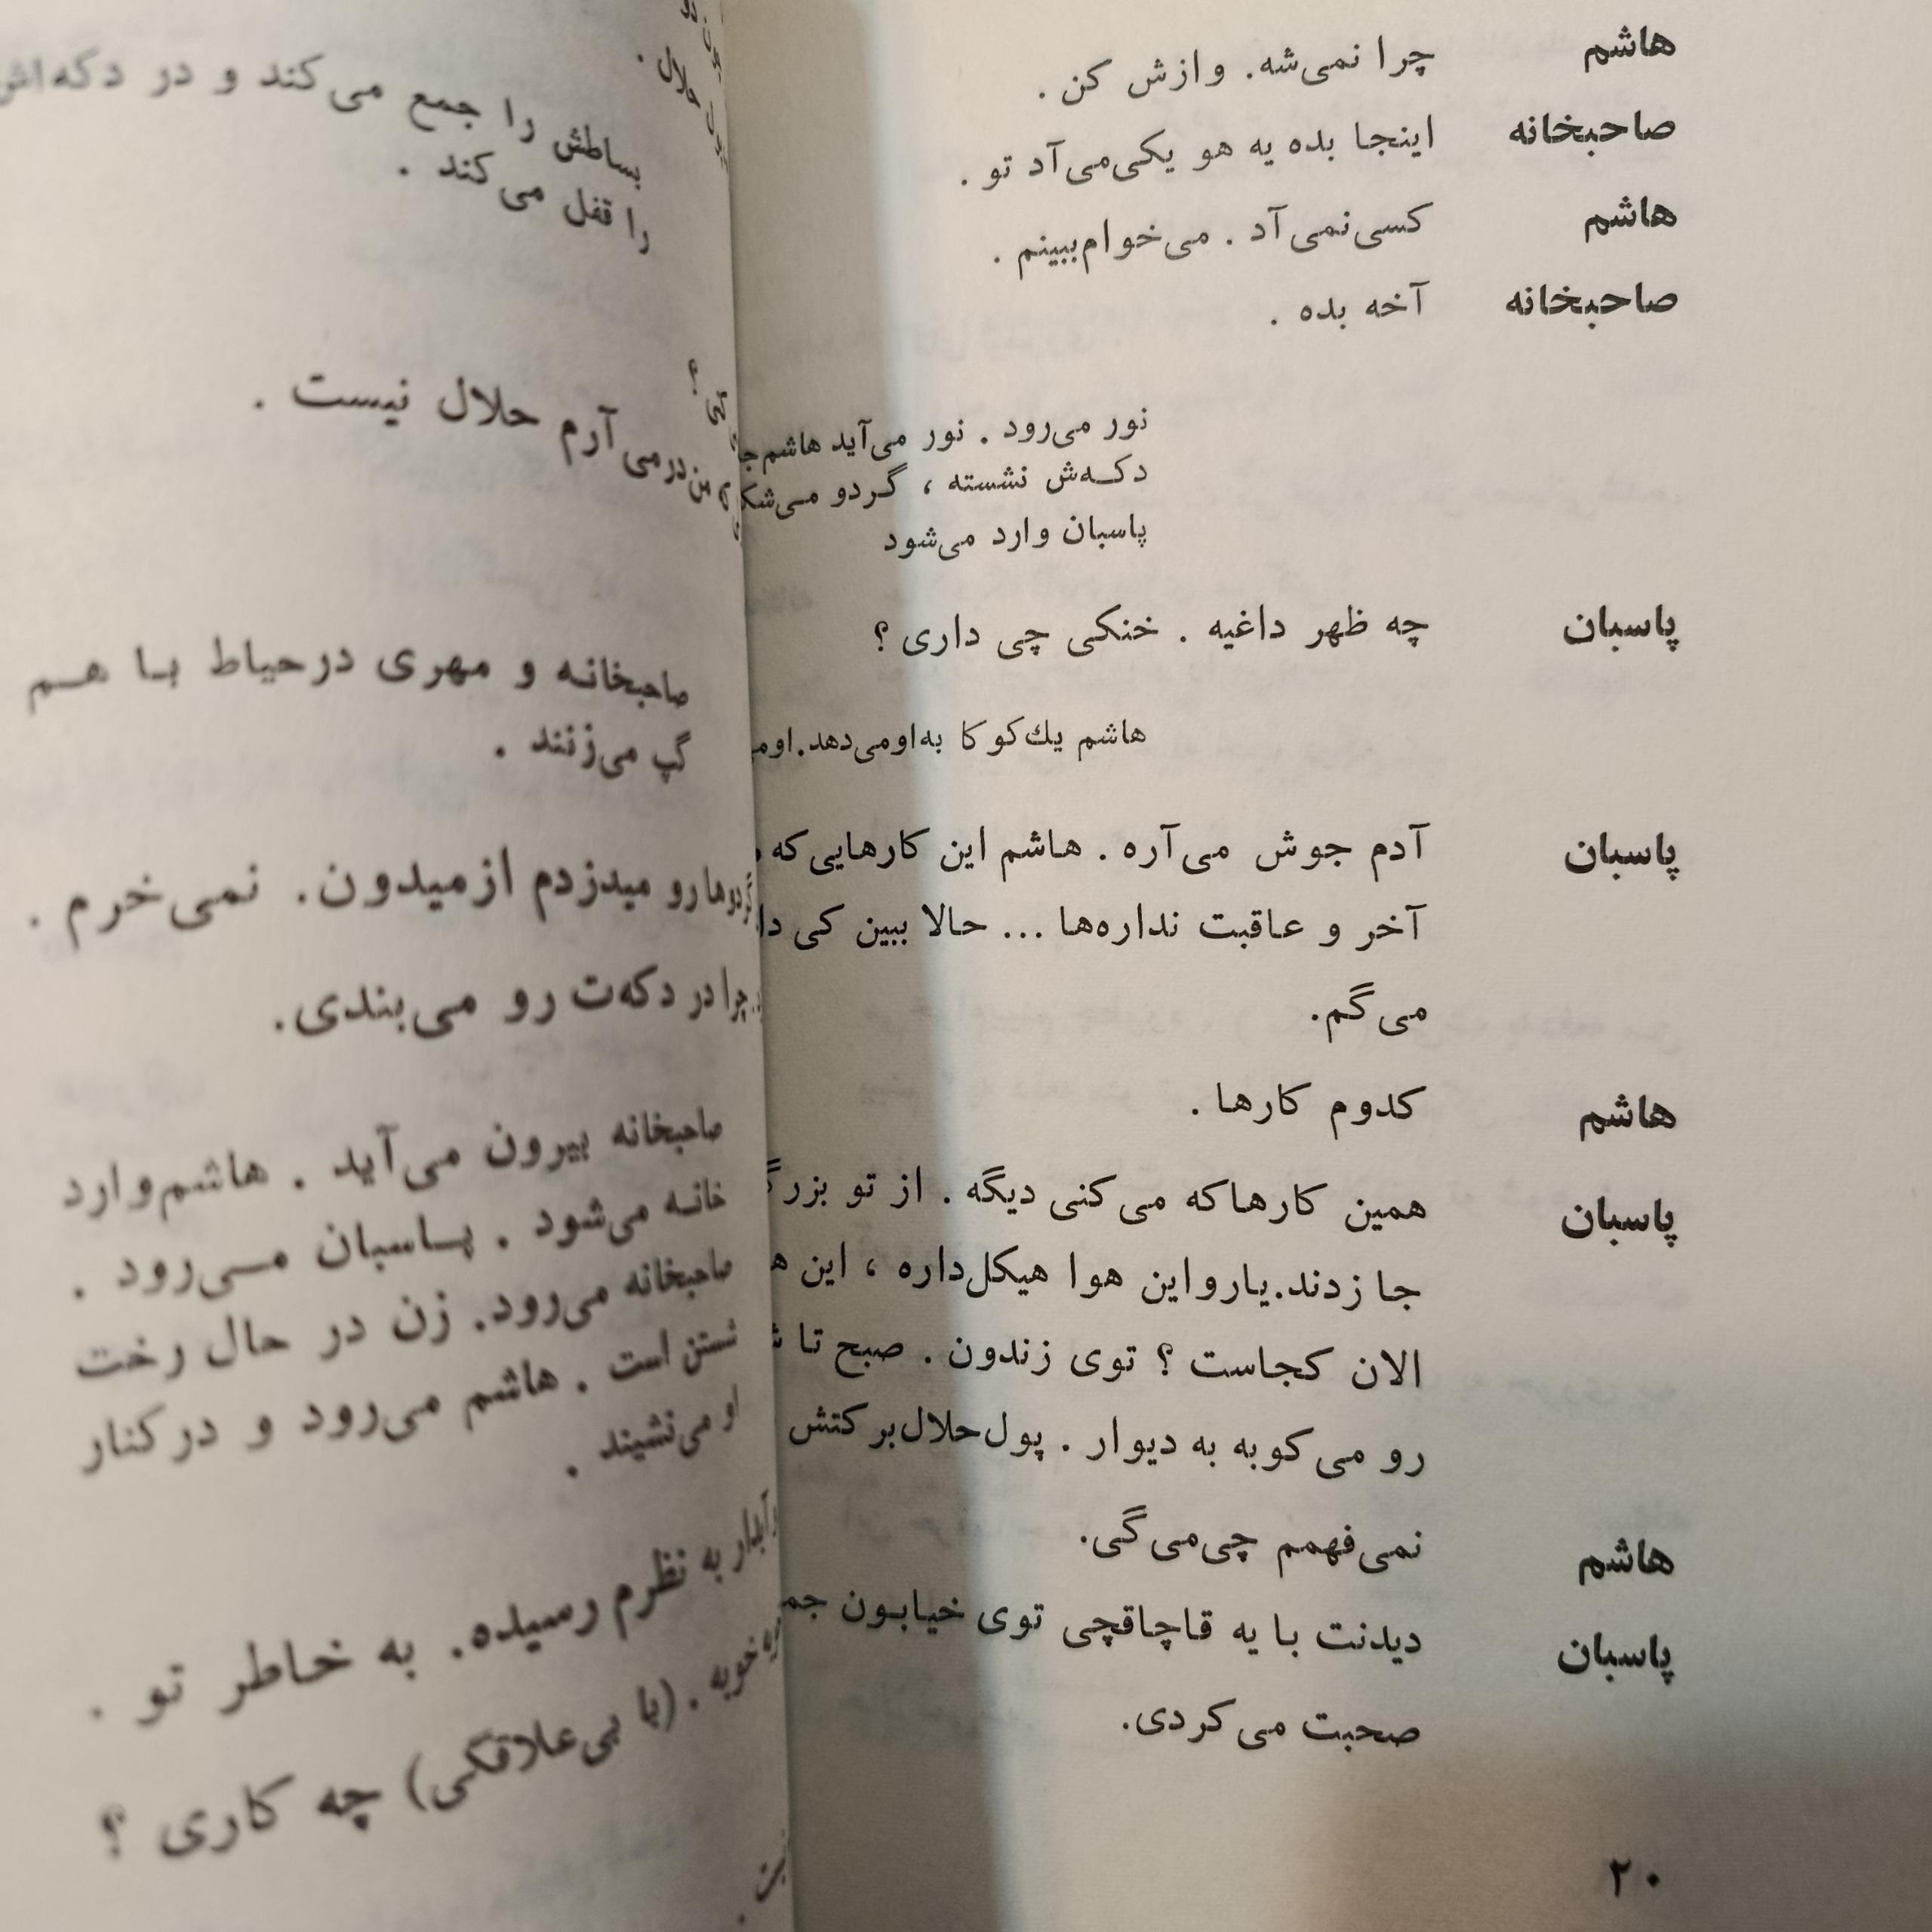 هاشم چرا نمی‌شه. وازش کن.
صاحبخانه اینجا بده یه هو یکی‌می‌آد تو.
هاشم کسی‌نمی‌آد. می‌خوام‌ببینم.
صاحبخانه آخه بده.
نور می‌رود. نور می‌آید هاشم
دکه‌ش نشسته، گردو
پاسبان وارد می‌شود
پاسبان چه ظهر داغیه. خنکی چی داری؟
هاشم یك‌کوکا به‌اومی‌دهد.
پاسبان آدم جوش می‌آره. هاشم این کارهایی‌که
آخر و عاقبت نداره‌ها ... حالا ببین کی
می‌گم.
هاشم کدوم کارها.
پاسبان همین کارهاکه می‌کنی دیگه. از تو
جا زدند.یارواین هوا هیکل‌داره، این
الان کجاست؟ توی زندون. صبح تا
رو می‌کوبه به دیوار. پول‌حلال‌بر کتش
هاشم نمی‌فهمم چی‌می‌گی.
پاسبان دیدنت با یه قاچاقچی توی خیابون
صحبت می‌کردی.
۲۰
بساطش را جمع می‌کند و در دکه‌اش
را قفل می‌کند.
درمی‌آرم حلال نیست.
صاحبخانه و مهری درحیاط با هم
گپ می‌زنند.
گردوهارو میدزدم ازمیدون. نمی‌خرم.
چرا در دکه‌ت رو می‌بندی.
صاحبخانه بیرون می‌آید. هاشم‌وارد
خانه می‌شود. پاسبان می‌رود.
صاحبخانه می‌رود. زن در حال رخت
شستن است. هاشم می‌رود و درکنار
او می‌نشیند.
به نظرم رسیده. به خاطر تو.
خوبه. (با بی‌علاقگی) چه کاری؟